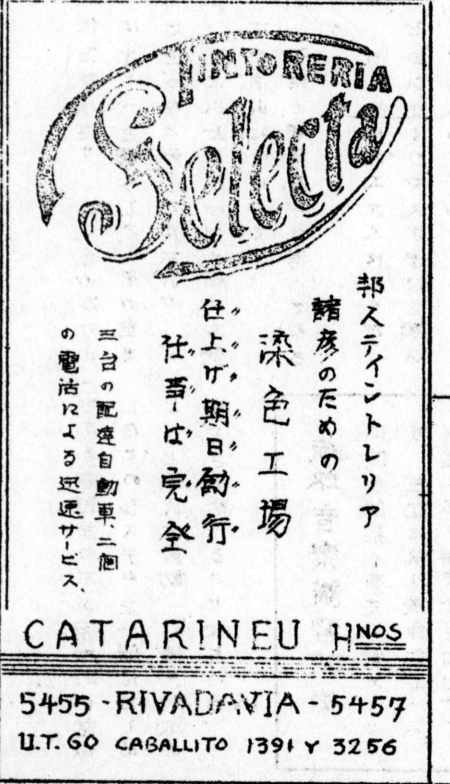 TINTORERIA
Selecta
邦人テイントレリア
諸彦のための
染色工場
仕上げ期日励行
仕事は完全
三台の配達自動車、二個
の電話による迅速サービス、
CATARINEU HNOS
5455 - RIVADAVIA - 5457
U.T. 60 CABALLITO 1391 Y 3256